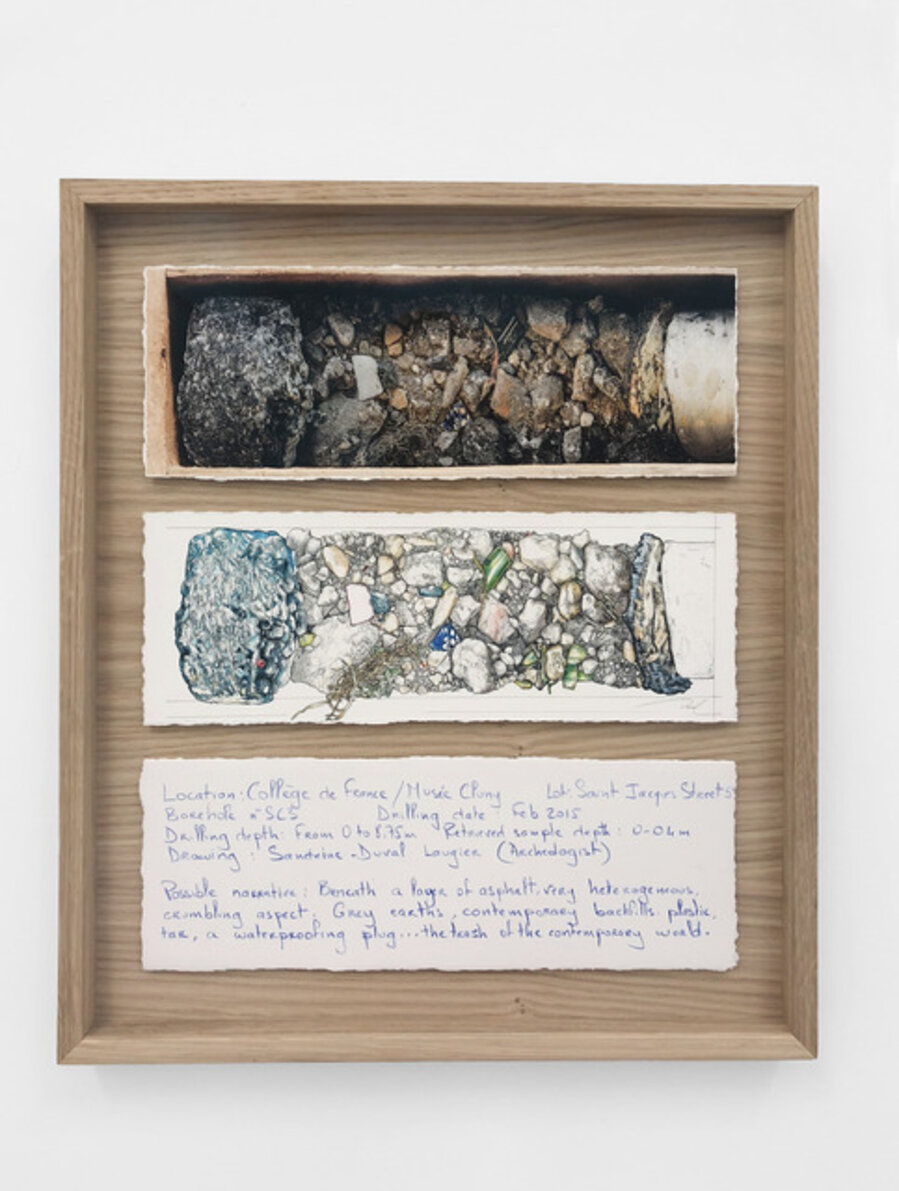 Location: Collège de France / Musée Cluny Lot: Saint Jacques Street
Borehole n° SC5 Drilling date: Feb 2015
Drilling depth: From 0 to 8.75m Retrieved sample depth: 0-04m
Drawing: Sandrine-Duval Laugier (Archeologist)
Possible narrative: Beneath a layer of asphalt, very heterogeneous,
crumbling aspect. Grey earths, contemporary backfills: plastic,
tar, a waterproofing plug... the trash of the contemporary world.